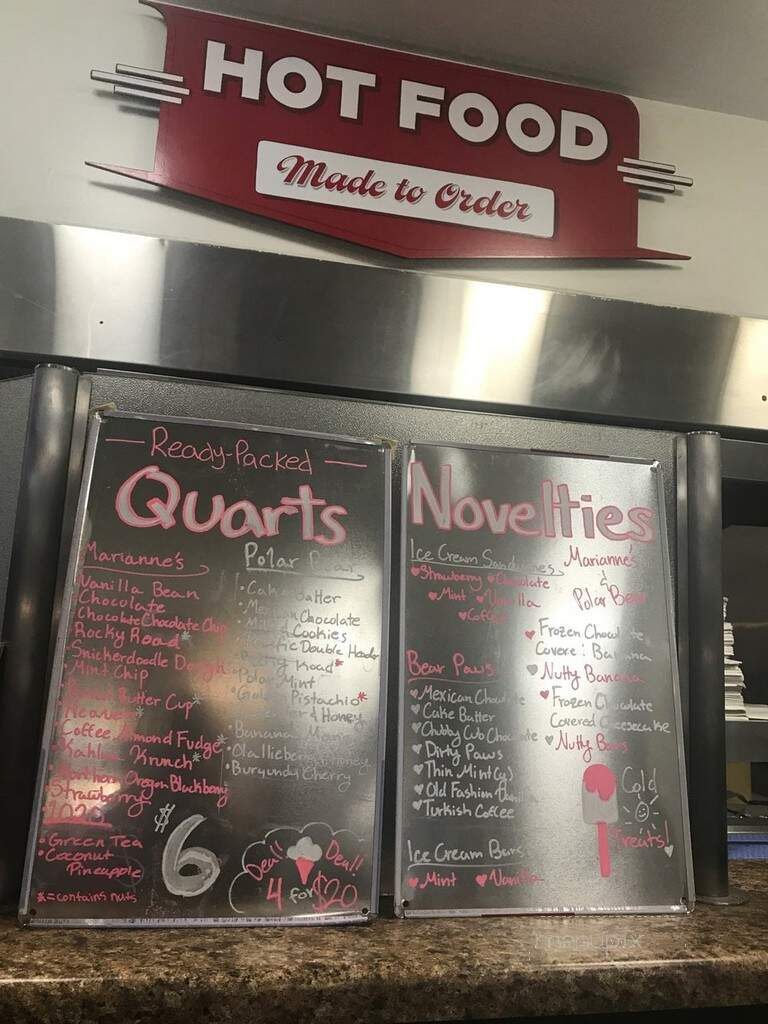 HOT FOOD
Made to Order
Ready-Packed
Quarts
Marianne's
Vanilla Bean
Chocolate
Chocolate Chocolate Chip
Rocky Road*
Snickerdoodle
Mint Chip
Butter Cup*
Coffee Almond Fudge*
Kahlua Krunch*
Northern Oregon Blackberry
Strawberry
1020
• Green Tea
• Coconut
Pineapple
*=contains nuts
Polar
• Cake Batter
Chocolate
Cookies
Double Header
Road*
Polar Mint
Pistachio*
& Honey
Banana
• Olallieberry
• Burgundy Cherry
$6
Deal! Deal!
4 for $20
Novelties
Ice Cream Sandwiches
♥Strawberry ♥Chocolate
♥Mint ♥Vanilla
♥Coffee
Bear Paws
♥Mexican Chocolate
♥Cake Batter
♥Chubby Cub Chocolate
♥Dirty Paws
♥Thin Mint(y)
♥Old Fashion
♥Turkish Coffee
Ice Cream Bars
♥Mint ♥Vanilla
Marianne's
&
Polar Bear
♥Frozen Chocolate
Covered Banana
♥Nutty Banana
♥Frozen Chocolate
Covered Cheesecake
♥Nutty Bars
Cold
Treats!